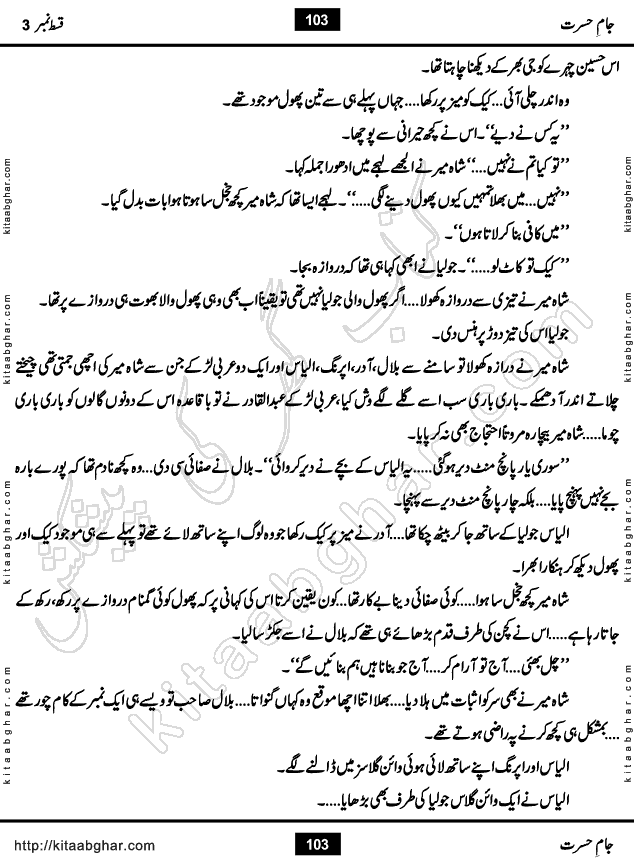 جامِ حسرت 103 قسط نمبر 3
اس حسین چہرے کو جی بھر کے دیکھنا چاہتا تھا۔
وہ اندر چلی آئی...کیک کو میز پر رکھا....جہاں پہلے ہی سے تین پھول موجود تھے۔
’’یہ کس نے دیے‘‘۔اس نے کچھ حیرانی سے پوچھا۔
’’تو کیا تم نے نہیں...‘‘شاہ میر نے الجھے لہجے میں ادھورا جملہ کہا۔
’’نہیں...میں بھلا تمہیں کیوں پھول دینے لگی....‘‘۔لہجے ایسا تھا کہ شاہ میر کچھ خجل سا ہوتا ہوا بات بدل گیا۔
’’میں کافی بنا کر لاتا ہوں‘‘۔
’’کیک تو کاٹ لو.....‘‘۔جولیا نے ابھی کہا ہی تھا کہ دروازہ بجا۔
شاہ میر نے تیزی سے دروازہ کھولا....اگر پھول والی جولیا نہیں تھی تو یقیناً اب بھی وہی پھول والا بھوت ہی دروازے پر تھا۔
جولیا اس کی تیز دوڑ پر ہنس دی۔
شاہ میر نے درازہ کھولا تو سامنے سے بلال،آدر،اپرنگ،الیاس اور ایک دو عربی لڑکے جن سے شاہ میر کی اچھی جمتی تھی چیختے
چلاتے اندر آ دھمکے۔باری باری سب اسے گلے لگے وش کیا،عربی لڑکے عبدالقادر نے تو باقاعدہ اس کے دونوں گالوں کو باری باری
چوما.....شاہ میر بیچارہ مروتاً احتجاج بھی نہ کر پایا۔
’’سوری یار پانچ منٹ دیر ہو گئی.....یہ الیاس کے بچے نے دیر کروائی‘‘۔بلال نے صفائی سی دی....وہ کچھ نادم تھا کہ پورے بارہ
بجے نہیں پہنچ پایا....بلکہ چار پانچ منٹ دیر سے پہنچا۔
الیاس جولیا کے ساتھ جا کر بیٹھ چکا تھا....آدر نے میز پر کیک رکھا جو وہ لوگ اپنے ساتھ لائے تھے تو پہلے سے ہی موجود کیک اور
پھول دیکھ کر ہنکارا بھرا۔
شاہ میر کچھ خجل سا ہوا.....کوئی صفائی دینا بے کار تھا...کون یقین کرتا اس کی کہانی پر کہ پھول کوئی گمنام دروازے پر رکھ،رکھ کے
جاتا رہا ہے.....اس نے کچن کی طرف قدم بڑھائے ہی تھے کہ بلال نے اسے جکڑ سا لیا۔
’’چل بھئی....آج تو آرام کر....آج جو بنانا ہیں ہم بنائیں گے‘‘۔
شاہ میر نے بھی سر کو اثبات میں ہلا دیا....بھلا اتنا اچھا موقع وہ کہاں گنواتا....بلال صاحب تو ویسے ہی ایک نمبر کے کام چور تھے
....بمشکل ہی کچھ کرنے پہ راضی ہوتے تھے۔
الیاس اور اپرنگ اپنے ساتھ لائی ہوئی وائن گلاسز میں ڈالنے لگے۔
الیاس نے ایک وائن گلاس جولیا کی طرف بھی بڑھایا.....
kitaabghar.com
kitaabghar.com
kitaabghar.com
kitaabghar.com
kitaabghar.com
kitaabghar.com
kitaabghar.com
kitaabghar.com
کتاب گھر کی پیشکش
kitaabghar.com
جامِ حسرت 103 http://kitaabghar.com